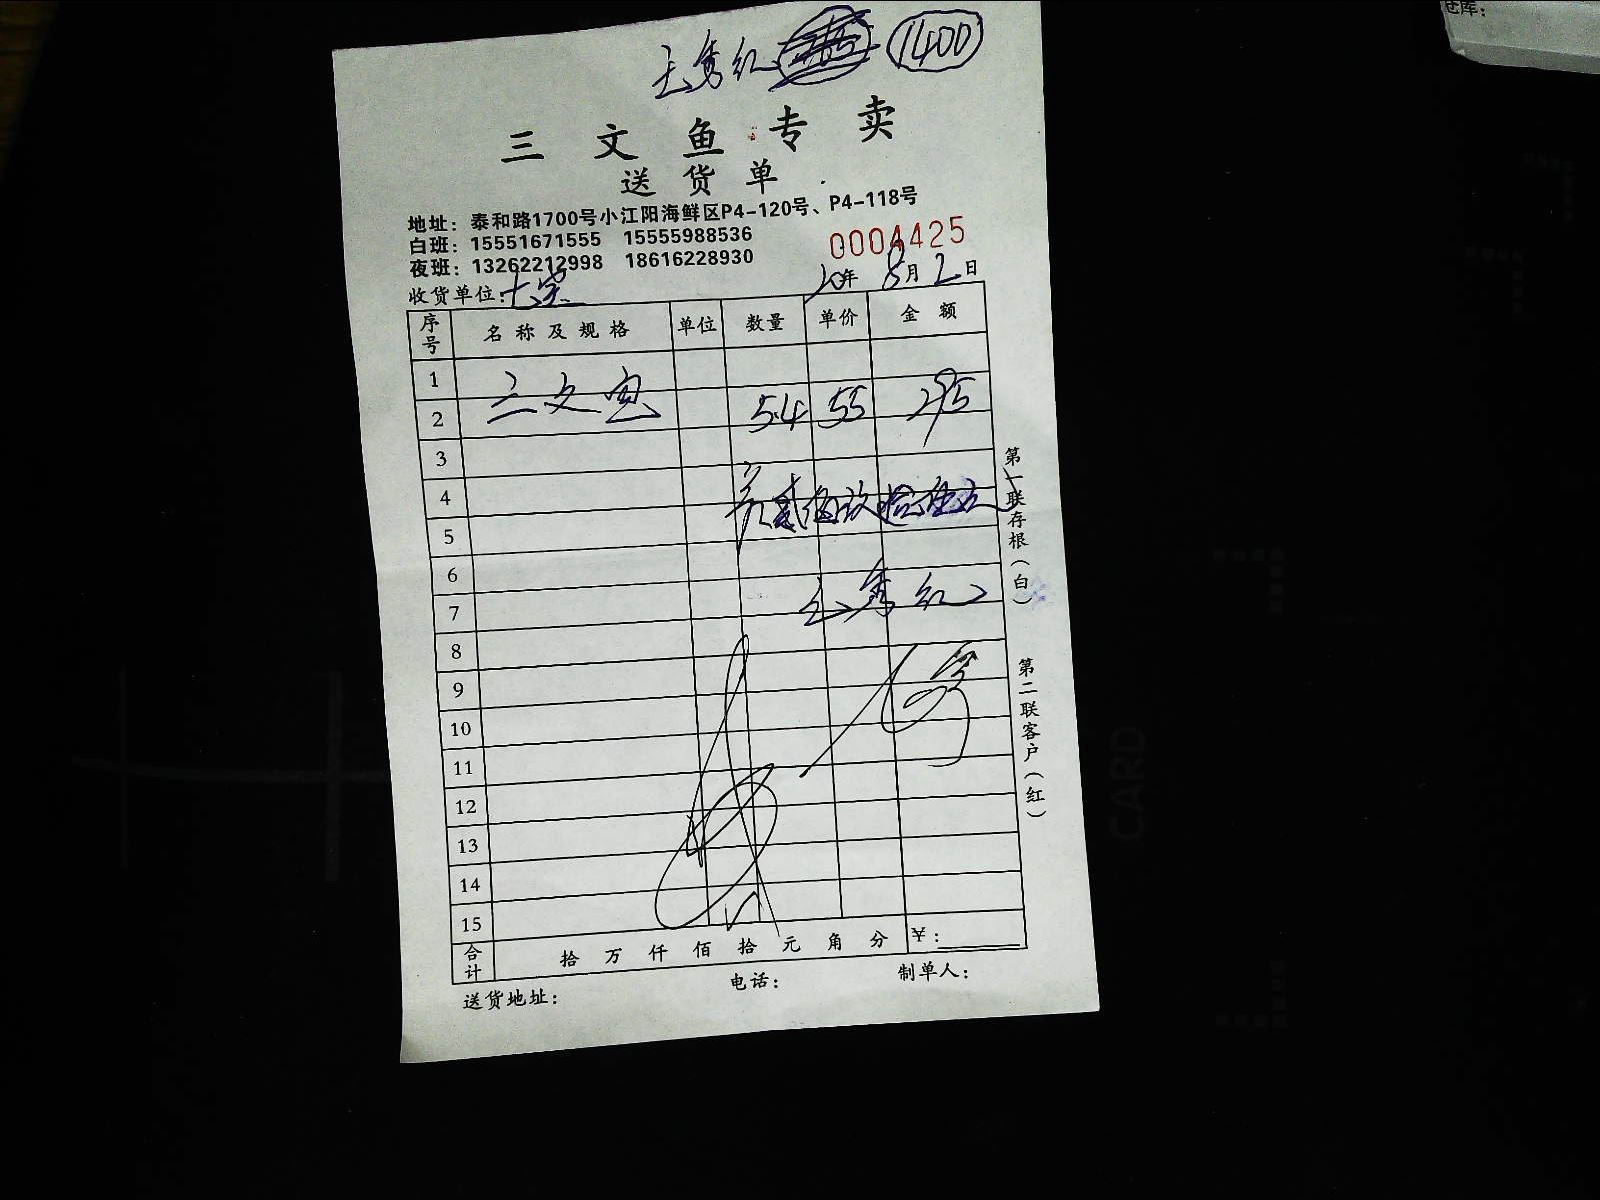 仓库：
王秀红 1400
三文鱼专卖
送货单
地址：泰和路1700号小江阳海鲜区P4-120号、P4-118号
白班：15551671555 15555988536
0004425
夜班：13262212998 18616228930
收货单位：
20年 8月 2日
序号 名称及规格 单位 数量 单价 金额
1
2 三文鱼 5.4 55 295
3
4
5
6
7 王秀红
8
9
10
11
12
13
14
15
合计 拾 万 仟 佰 拾 元 角 分 ¥：
送货地址： 电话： 制单人：
第一联存根（白）
第二联客户（红）
CARD